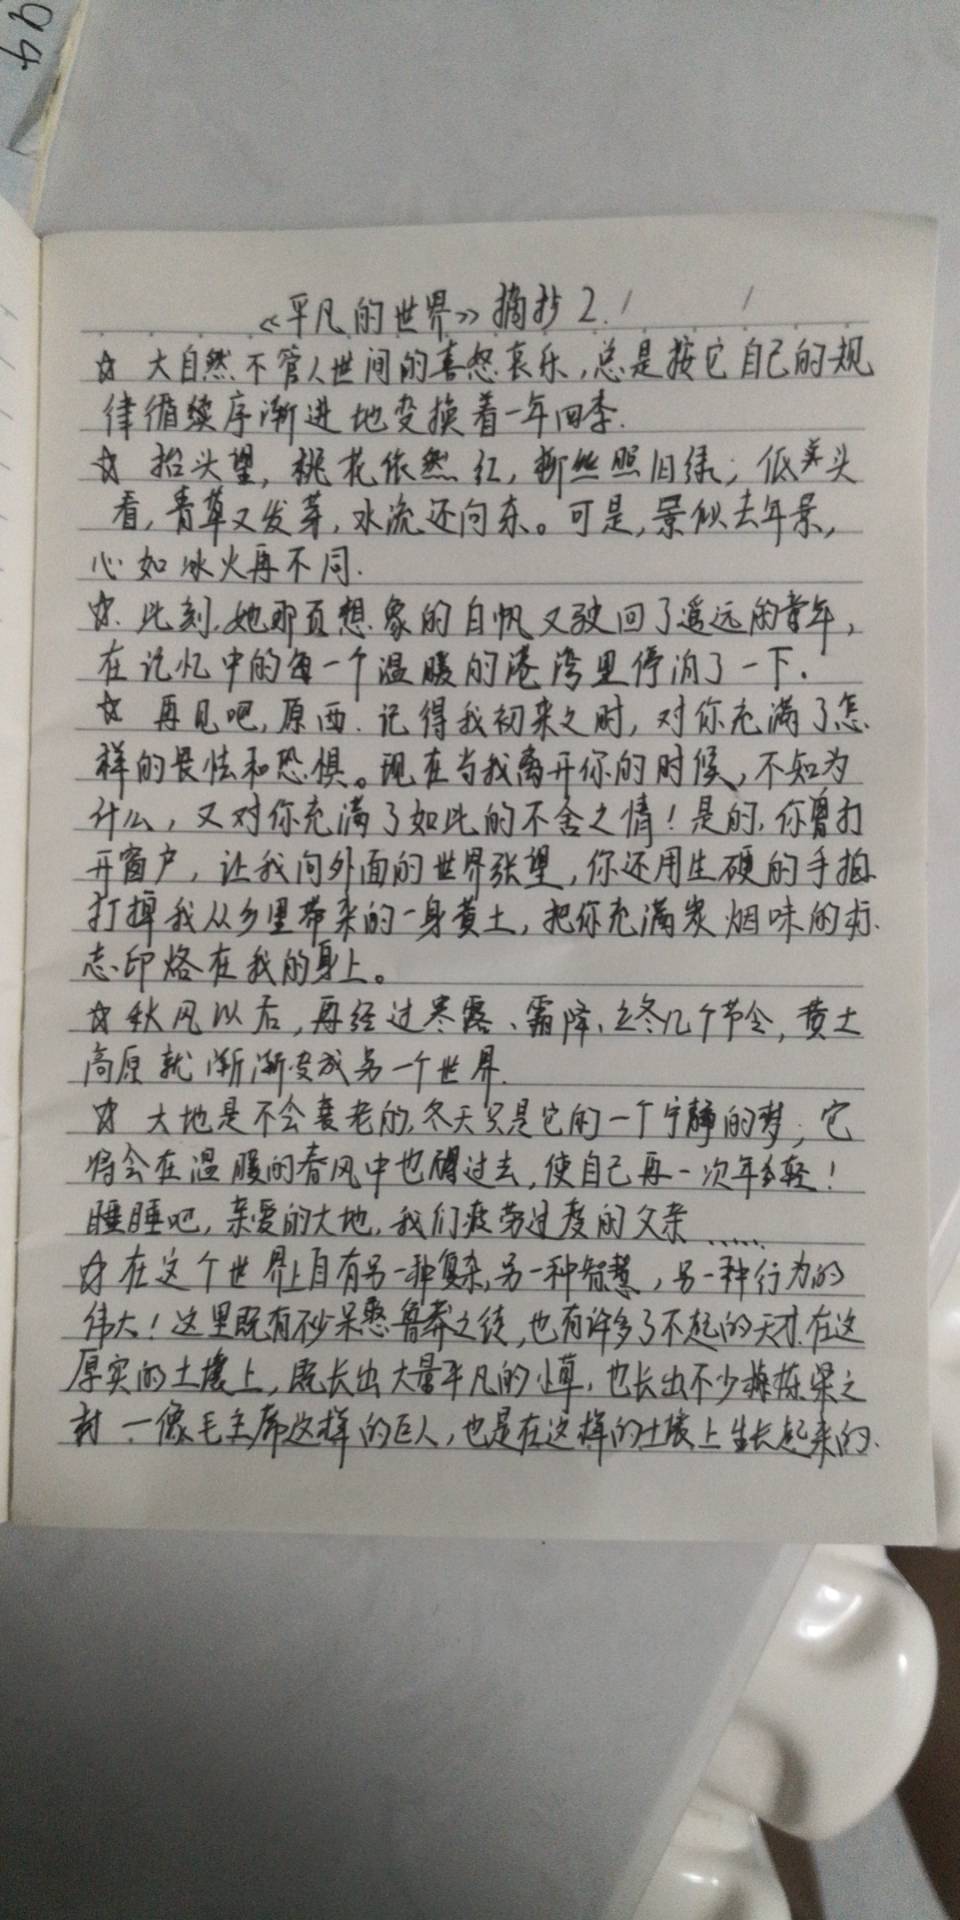 《平凡的世界》摘抄2.
☆ 大自然不管人世间的喜怒哀乐,总是按它自己的规
律循续序渐进地变换着一年四季.
☆ 抬头望,桃花依然红,柳丝照旧绿;低头
看,青草又发芽,水流还向东。可是,景似去年景,
心如冰火再不同.
☆.此刻,她那页想象的白帆又驶回了遥远的昔年,
在记忆中的每一个温暖的港湾里停泊了一下.
☆ 再见吧,原西.记得我初来之时,对你充满了怎
样的畏怯和恐惧。现在当我离开你的时候,不知为
什么,又对你充满了如此的不舍之情!是的,你曾打
开窗户,让我向外面的世界张望,你还用生硬的手拍
打掉我从乡里带来的一身黄土,把你充满炭烟味的标
志印烙在我的身上。
☆秋风以后,再经过寒露、霜降、立冬几个节令,黄土
高原就渐渐变成另一个世界.
☆ 大地是不会衰老的,冬天只是它的一个宁静的梦;它
将会在温暖的春风中也醒过去,使自己再一次年轻!
睡睡吧,亲爱的大地,我们疲劳过度的父亲……
☆在这个世界上自有另一种复杂,另一种智慧,另一种行为的
伟大!这里既有不少呆憨鲁莽之徒,也有许多了不起的天才.在这
厚实的土壤上,既长出大量平凡的小草,也长出不少栋梁之
材.一像毛主席这样的巨人,也是在这样的土壤上生长起来的.